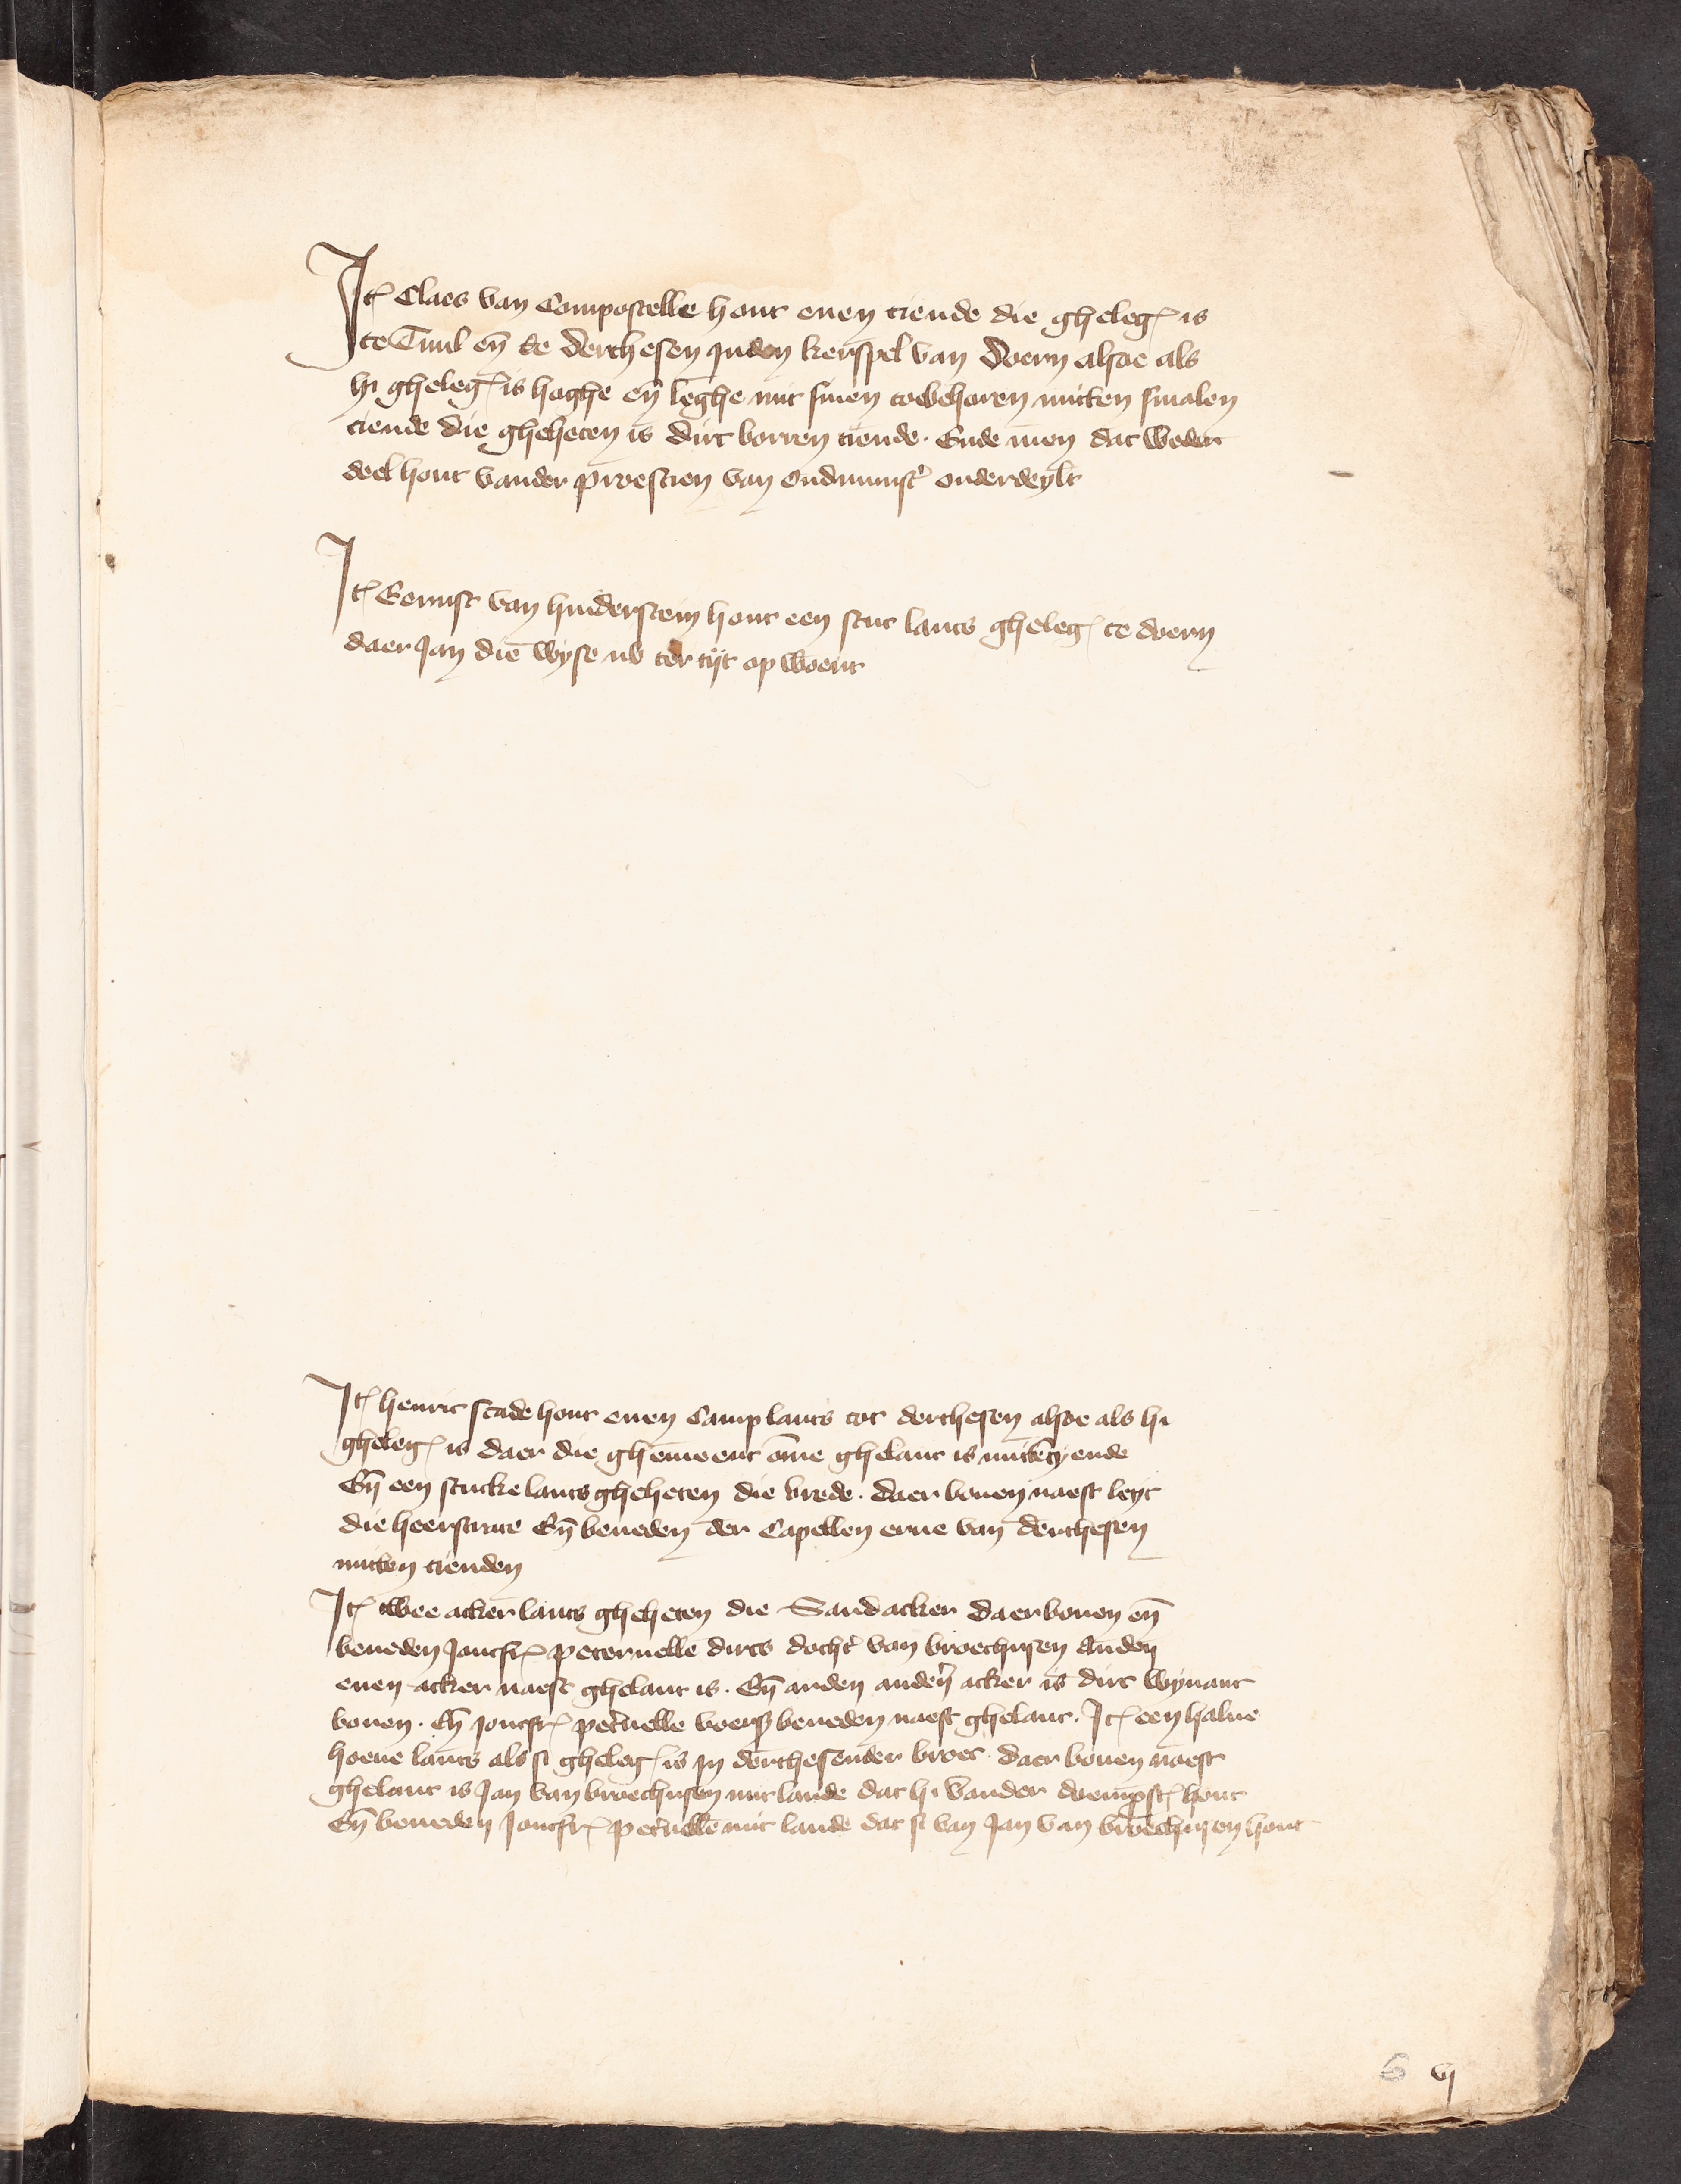 Itē Claes van Compostelle hout enen tiende die ghelegē is
te Tuul eñ te Derthesen inden kerspel van Doern alsoe als
hi ghelegē is hoghe eñ leghe mit sinen toebehoren mitten smalen
tiende die gheheten is dirc borren tiende. Ende men dat weder
deel hout vander proestien van oudmunstr̉ onderdeylt
Itē Eernst van hinderstein hout een stuc lants ghelegē te doern
daer Jan die wyse nv ter tijt op woent
Itē henric stade hout enen Camp lants tot derthesen alsoe als hi
ghelegē is daer die ghemeent ōme ghelant is mittē tyende
Eñ een stucke lants gheheten die brede. daer bouen naest leyt
die heerstrate Eñ beneden der Capellen erue van derthesen
mitten tienden
Itē twee acker lants gheheten die Sandacker daer bouen eñ
beneden Joncfrē peternelle dircs dochtr̉ van broechusen Anden
enen acker naest ghelant is. Eñ anden andern̉ acker is dirc wynant
bouen. Eñ joncfrē petr̉nelle voersz beneden naest ghelant. Itē een halue
hoeue lants als si ghelegē is in derthesender broec. daer bouen naest
ghelant is Jan van broechusen mit lande dat hi vander doemp̄stē hout
Eñ beneden Joncfrē petr̉nelle mit lande dat si van Jan van broechusen hout
6 vj